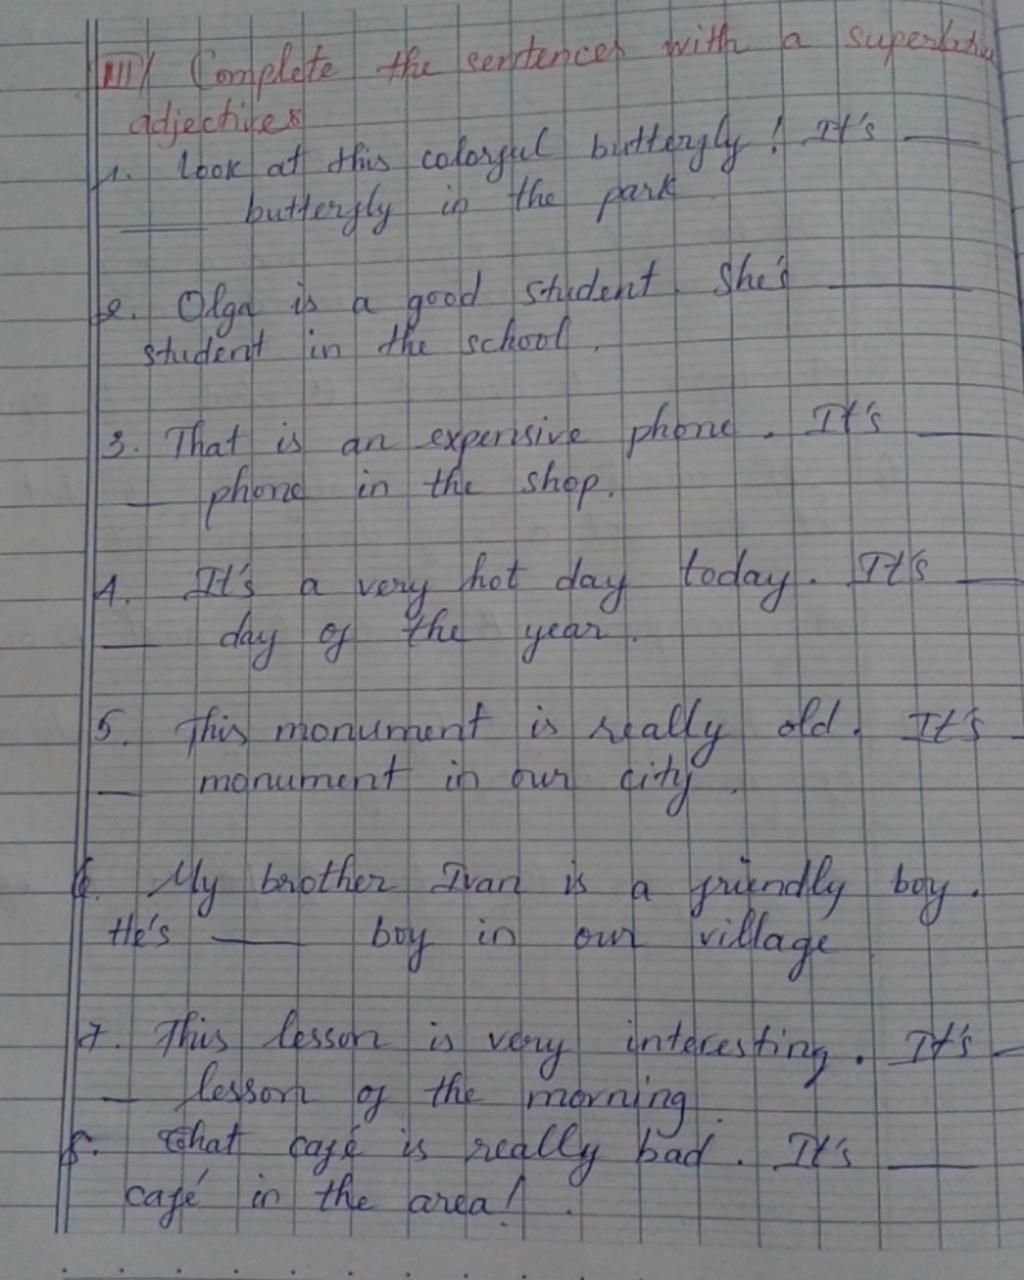 III/ Complete the sentences with a superlative
adjectives
1. Look at this colorful butterfly! It's ___
___ butterfly in the park
2. Olga is a good student. She's ___
student in the school.
3. That is an expensive phone. It's ___
___ phone in the shop.
4. It's a very hot day today. It's ___
___ day of the year.
5. This monument is really old. It's ___
___ monument in our city.
6. My brother Ivan is a friendly boy.
He's ___ boy in our village
7. This lesson is very interesting. It's ___
___ lesson of the morning
8. That café is really bad. It's ___
café in the area!